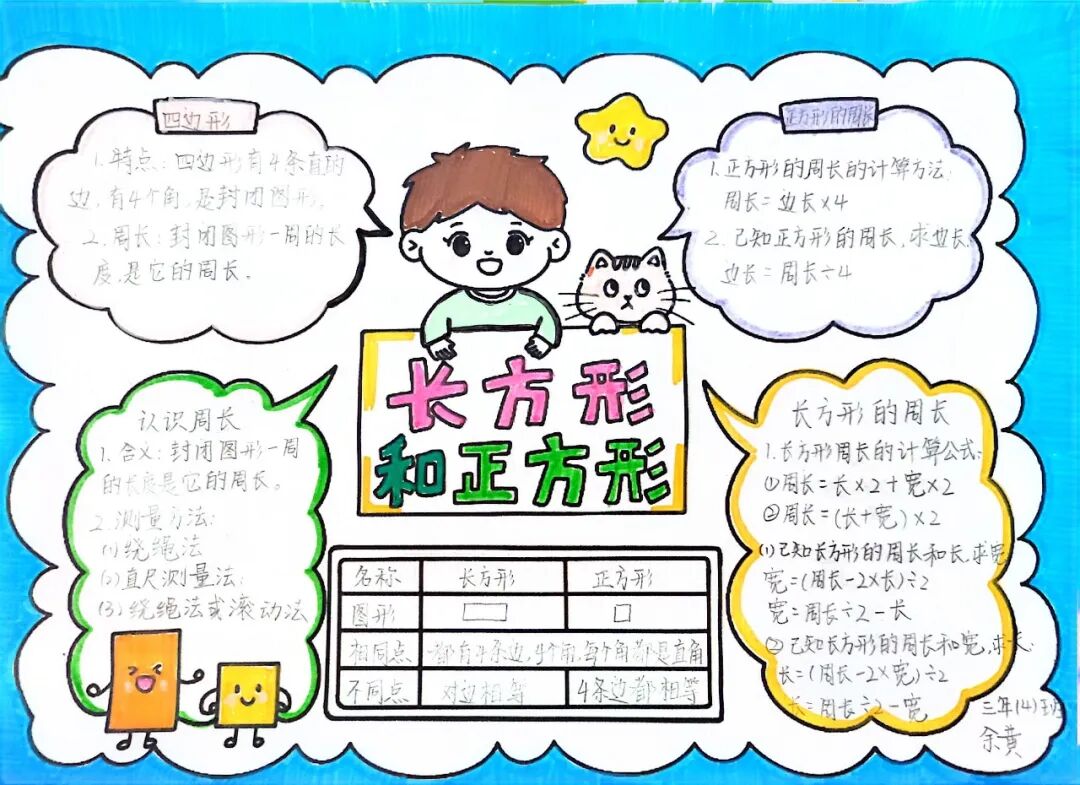 四边形
1.特点：四边形有4条直的
边，有4个角，是封闭图形。
2.周长：封闭图形一周的长
度，是它的周长。
正方形的周长
1.正方形的周长的计算方法：
周长=边长×4
2.已知正方形的周长，求边长：
边长=周长÷4
长方形
和正方形
认识周长
1.含义：封闭图形一周
的长度是它的周长。
2.测量方法：
(1)绕绳法
(2)直尺测量法：
(3)绕绳法或滚动法
名称 长方形 正方形
图形
相同点 都有4条边，4个角，每个角都是直角
不同点 对边相等 4条边都相等
长方形的周长
1.长方形周长的计算公式：
①周长=长×2+宽×2
②周长=(长+宽)×2
(1)已知长方形的周长和长，求宽
宽=(周长-2×长)÷2
宽=周长÷2-长
②已知长方形的周长和宽，求长：
长=(周长-2×宽)÷2
长=周长÷2-宽
三年(4)班
余黄